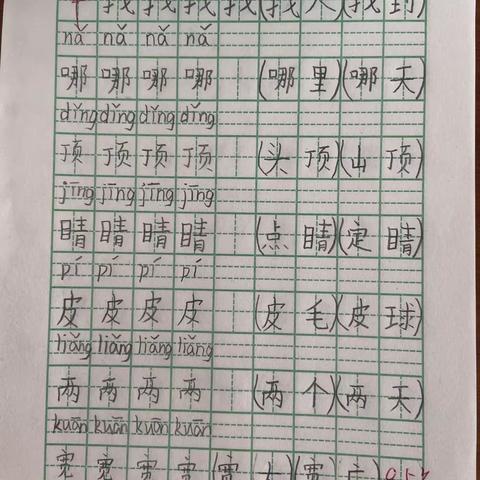 找 找 找 找 (找 人) (找 到)
nǎ nǎ nǎ nǎ
哪 哪 哪 哪 (哪 里) (哪 天)
dǐng dǐng dǐng dǐng
顶 顶 顶 顶 (头 顶) (山 顶)
jīng jīng jīng jīng
睛 睛 睛 睛 (点 睛) (定 睛)
pí pí pí pí
皮 皮 皮 皮 (皮 毛) (皮 球)
liǎng liǎng liǎng liǎng
两 两 两 两 (两 个) (两 天)
kuān kuān kuān kuān
宽 宽 宽 宽 (宽